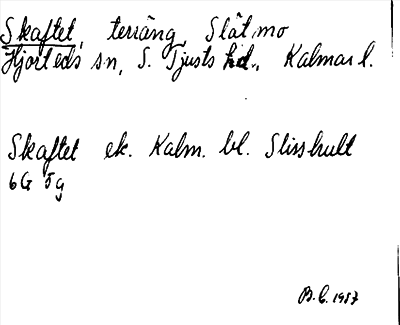 Skaftet, terräng, Slät, mo
Hjorteds sn, S. Tjusts hd., Kalmar l.
Skaftet ek. Kalm. bl. Slisshult
6G 5g
B.C. 1957